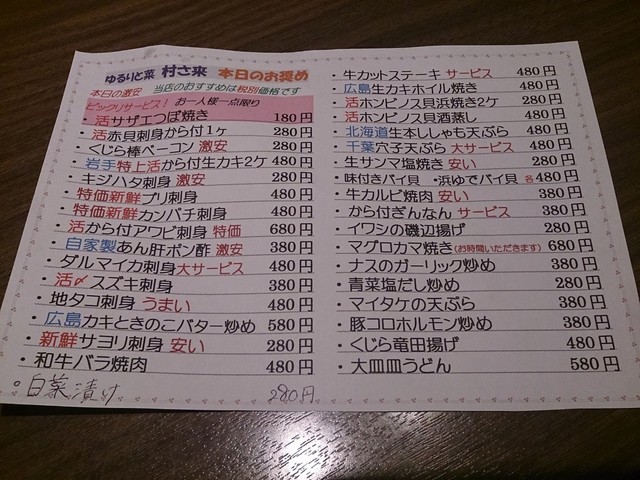 ゆるりと菜 村さ来 本日のお奨め
本日の激安 当店のおすすめは税別価格です
ビックリサービス! お一人様一点限り
・活サザエつぼ焼き 180円
・活赤貝刺身から付1ヶ 280円
・くじら棒ベーコン 激安 280円
・岩手特上活から付生カキ2ケ 480円
・キジハタ刺身 激安 280円
・特価新鮮ブリ刺身 480円
・特価新鮮カンパチ刺身 480円
・活から付アワビ刺身 特価 680円
・自家製あん肝ポン酢 激安 380円
・ダルマイカ刺身大サービス 480円
・活〆スズキ刺身 380円
・地タコ刺身 うまい 480円
・広島カキときのこバター炒め 580円
・新鮮サヨリ刺身 安い 280円
・和牛バラ焼肉 480円
。白菜漬け 280円
・牛カットステーキ サービス 480円
・広島生カキホイル焼き 480円
・活ホンビノス貝浜焼き2ケ 280円
・活ホンビノス貝酒蒸し 480円
・北海道生本ししゃも天ぷら 480円
・千葉穴子天ぷら 大サービス 480円
・生サンマ塩焼き 安い 280円
・味付きバイ貝 ・浜ゆでバイ貝 各480円
・牛カルビ焼肉 安い 380円
・から付ぎんなん サービス 380円
・イワシの磯辺揚げ 280円
・マグロカマ焼き(お時間いただきます) 680円
・ナスのガーリック炒め 380円
・青菜塩だし炒め 280円
・マイタケの天ぷら 380円
・豚コロホルモン炒め 380円
・くじら竜田揚げ 480円
・大皿皿うどん 580円